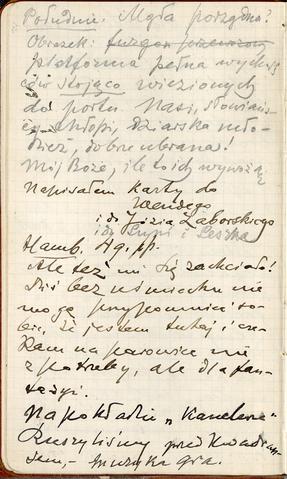 Południe. Mgła porządna?
Obrazek: furgon
platforma pełna wychodź
ców stojąco wiezionych
do portu. Nasi, słowiańs
cy chłopi, dziarska mło
dzież, dobrze ubrana!
Mój Boże, ile to ich wywożą.
Napisałem karty do
i do Józia Zaborskiego
i do Lusni i Leszka
Hamb. Ag. pp.
Ale też mi się zachciało!
Dziś bez uśmiechu nie
mogę przypomnieć so-
bie, że jestem tutaj i cze-
kam na parowiec nie
z potrzeby, ale dla fan-
tazyi.
Na pokładzie „
Ruszyliśmy przed kwadran
sem, - muzyka gra.